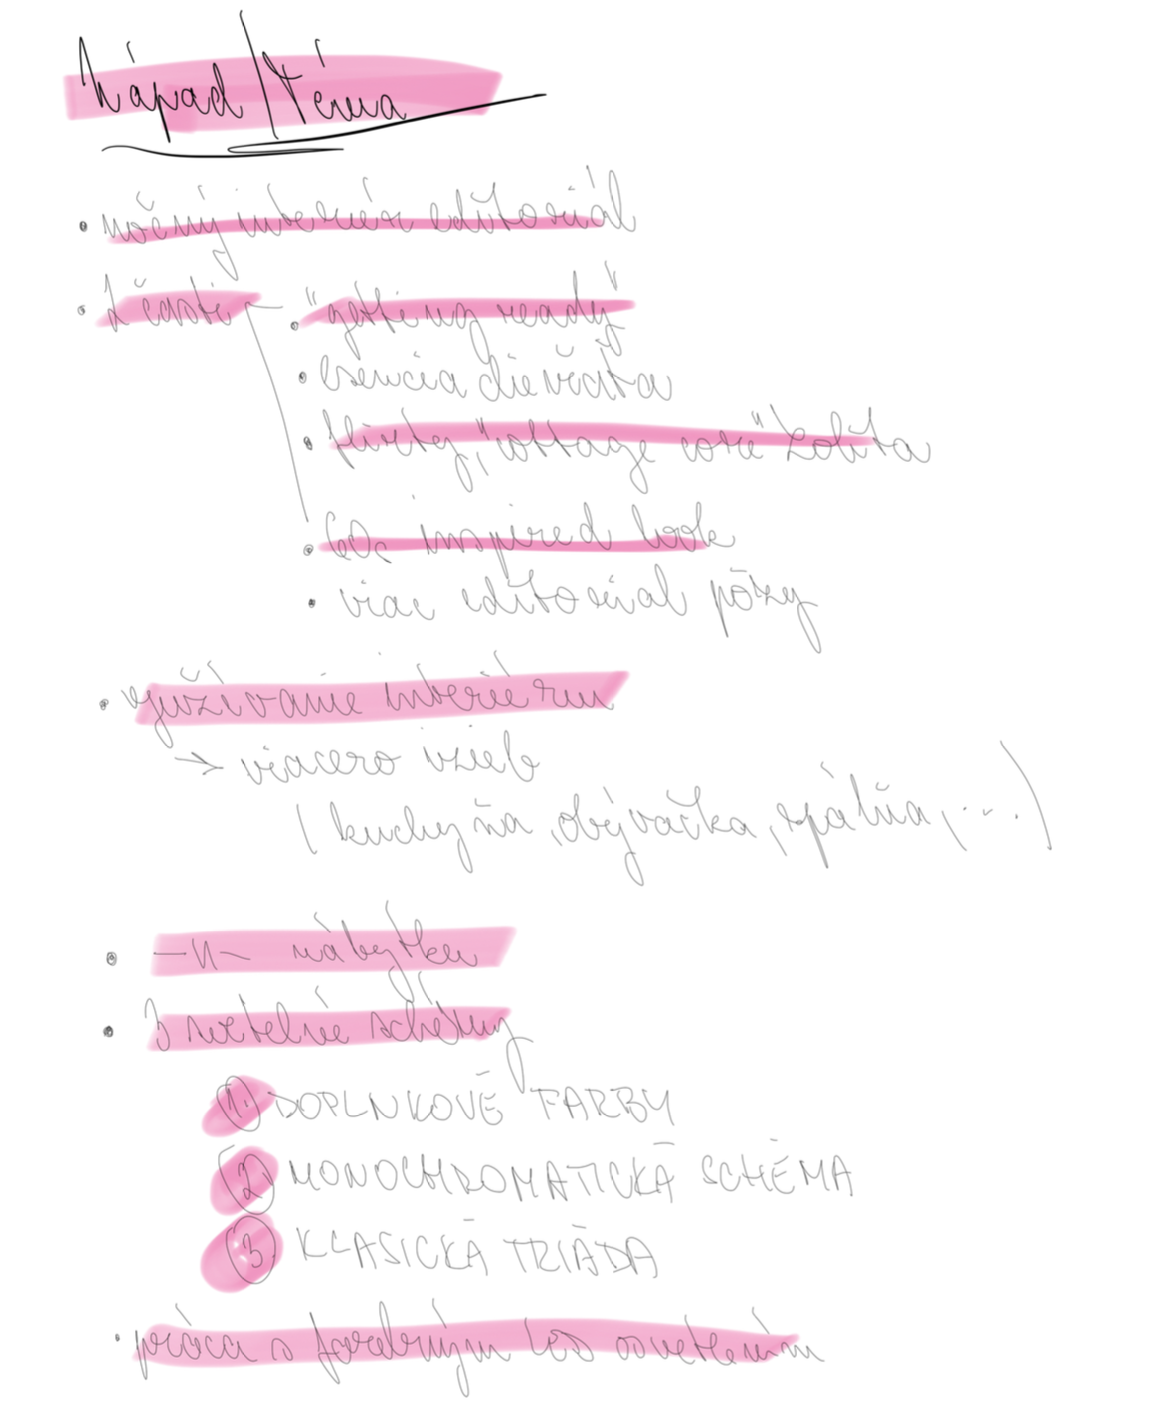 Nápad/Téma
• nočný interiér editoriál
• 2 časti - • "getting ready"
• esencia dievčaťa
• flirty, "cottage core" Lolita
• 60s inspired look
• viac editorial pózy
• využívanie interiéru
→ viacero izieb
(kuchyňa, obývačka, spálňa, ...)
• —||— nábytku
• 3 svetelné schémy
1. DOPLNKOVÉ FARBY
2. MONOCHROMATICKÁ SCHÉMA
3. KLASICKÁ TRIÁDA
• práca s farebným LED osvetlením